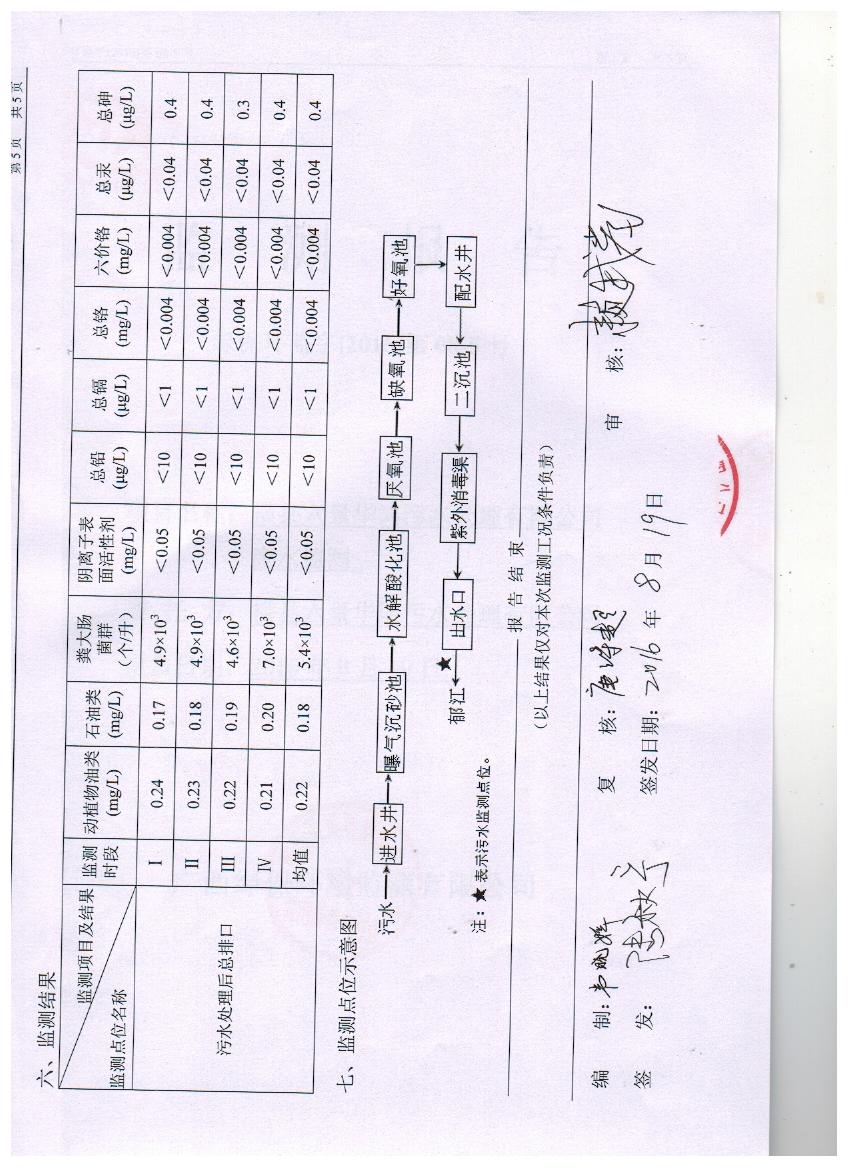 第 5 页 共 5 页
六、监测结果
监测项目及结果 监测点位名称 监测时段 动植物油类(mg/L) 石油类(mg/L) 粪大肠菌群(个/升) 阴离子表面活性剂(mg/L) 总铅(μg/L) 总镉(μg/L) 总铬(mg/L) 六价铬(mg/L) 总汞(μg/L) 总砷(μg/L)
污水处理后总排口
Ⅰ 0.24 0.17 4.9×10³ <0.05 <10 <1 <0.004 <0.004 <0.04 0.4
Ⅱ 0.23 0.18 4.9×10³ <0.05 <10 <1 <0.004 <0.004 <0.04 0.4
Ⅲ 0.22 0.19 4.6×10³ <0.05 <10 <1 <0.004 <0.004 <0.04 0.3
Ⅳ 0.21 0.20 7.0×10³ <0.05 <10 <1 <0.004 <0.004 <0.04 0.4
均值 0.22 0.18 5.4×10³ <0.05 <10 <1 <0.004 <0.004 <0.04 0.4
七、监测点位示意图
污水 进水井 曝气沉砂池 水解酸化池 厌氧池 缺氧池 好氧池
郁江 ★ 出水口 紫外消毒渠 二沉池 配水井
注：★表示污水监测点位。
报 告 结 束
（以上结果仅对本次监测工况条件负责）
编 制: 复 核: 审 核:
签 发: 签发日期: 2016 年 8 月 19 日